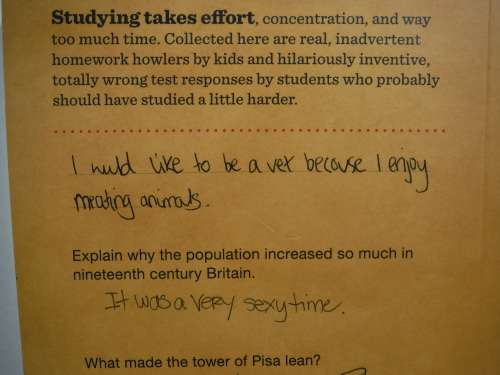 Studying takes effort, concentration, and way
too much time. Collected here are real, inadvertent
homework howlers by kids and hilariously inventive,
totally wrong test responses by students who probably
should have studied a little harder.
I would like to be a vet because I enjoy
meating animals.
Explain why the population increased so much in
nineteenth century Britain.
It was a very sexy time.
What made the tower of Pisa lean?